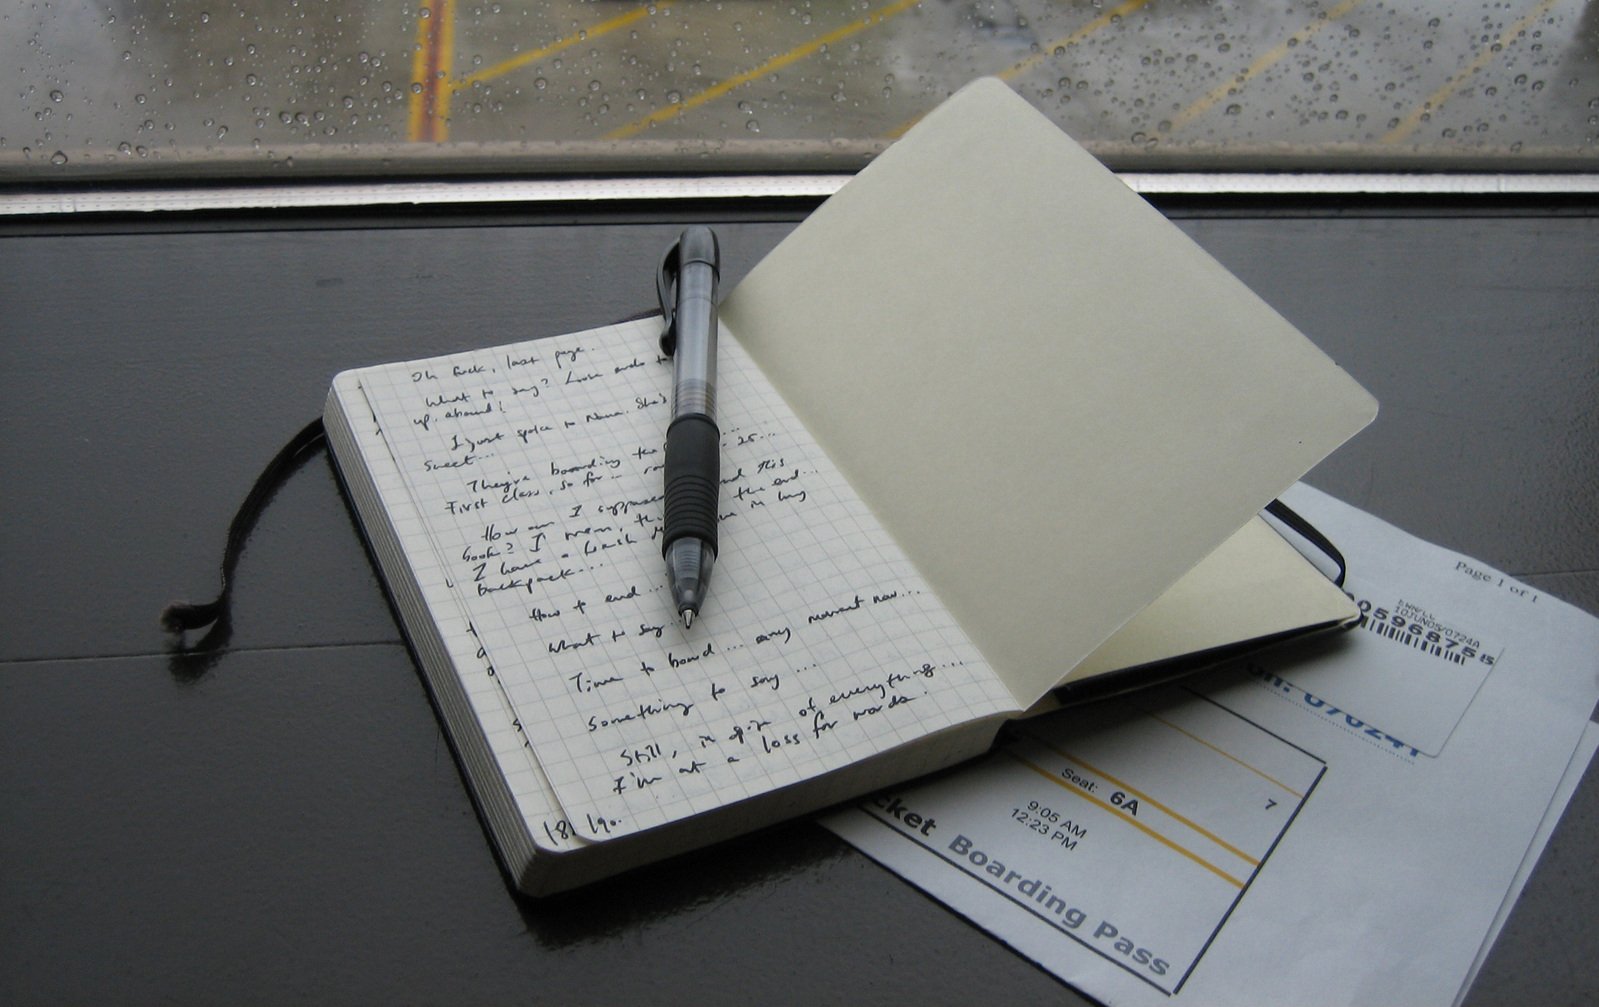 Oh fuck, last page.
What to say? Loose ends to
up, abound!
I just spoke to Nana. She's
sweet...
They're boarding the ... 25...
First class, so far...
How am I suppose end this
book? I mean, the end...
I have a fresh in my
backpack...
How to end...
What to say
Time to board... any moment now...
Something to say...
Still, in spite of everything...
I'm at a loss for words.
18
190.
Page 1 of 1
EWRCC
10JUN05/0724A
0596875
45
070241
7
Seat: 6A
9:05 AM
12:23 PM
cket Boarding Pass